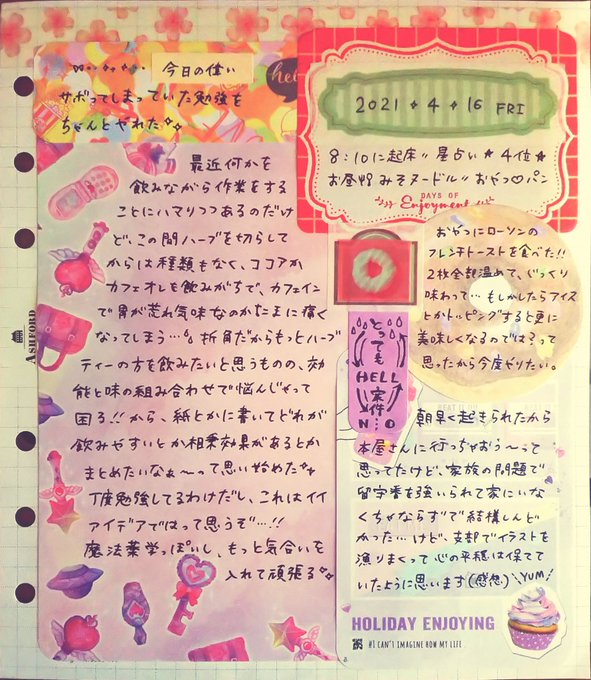 今日の偉い
サボってしまっていた勉強を
ちゃんとやれた
hel
最近何かを
飲みながら作業をする
ことにハマりつつあるのだけ
ど、この間ハーブを切らして
からは種類もなく、ココアか
カフェオレを飲みがちで、カフェイン
で胃が荒れ気味なのかたまに痛く
なってしまう…折角だからもっとハーブ
ティーの方を飲みたいと思うものの、効
能と味の組み合わせで悩んじゃって
困る!!から、紙とかに書いてどれが
飲みやすいとか相乗効果があるとか
まとめたいなぁ〜って思い始めた
丁度勉強してるわけだし、これはイイ
アイデアではって思うぞ…!!
魔法薬学っぽいし、もっと気合いを
入れて頑張る
ASHFORD
2021 4 16 FRI
8:10に起床 星占い★4位★
お昼 みそヌードル おやつ♡パン
DAYS OF
Enjoyment
おやつにローソンの
フレンチトーストを食べた!!
2枚全部温めて、じっくり
味わって…もしかしたらアイス
とかトッピングすると更に
美味しくなるのでは?って
思ったから今度やりたい。
とっても
HELL
案件…
N O
朝早く起きられたから
本屋さんに行っちゃおう〜って
思ってたけど、家族の問題で
留守番を強いられて家にいな
くちゃならずで結構しんど
かった…けど、支部でイラストを
漁りまくって心の平穏は保てて
いたように思います(感想)
YUM
HOLIDAY ENJOYING
#I CAN'T IMAGINE HOW MY LIFE